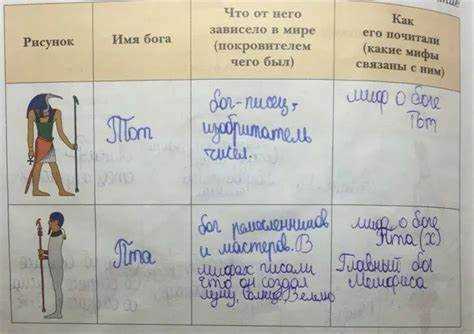 Рисунок
Имя бога
Что от него
зависело в мире
(покровителем
чего был)
Как
его почитали
(какие мифы
связаны с ним)
Тот
бог-писец,
изобритатель
чисел.
миф о боге
Тот
Пта
бог ремесленников
и мастеров. В
мифах писали
что он создал
луну, солнце, Землю
миф о боге
Пта (х)
Главный бог
Мемфиса